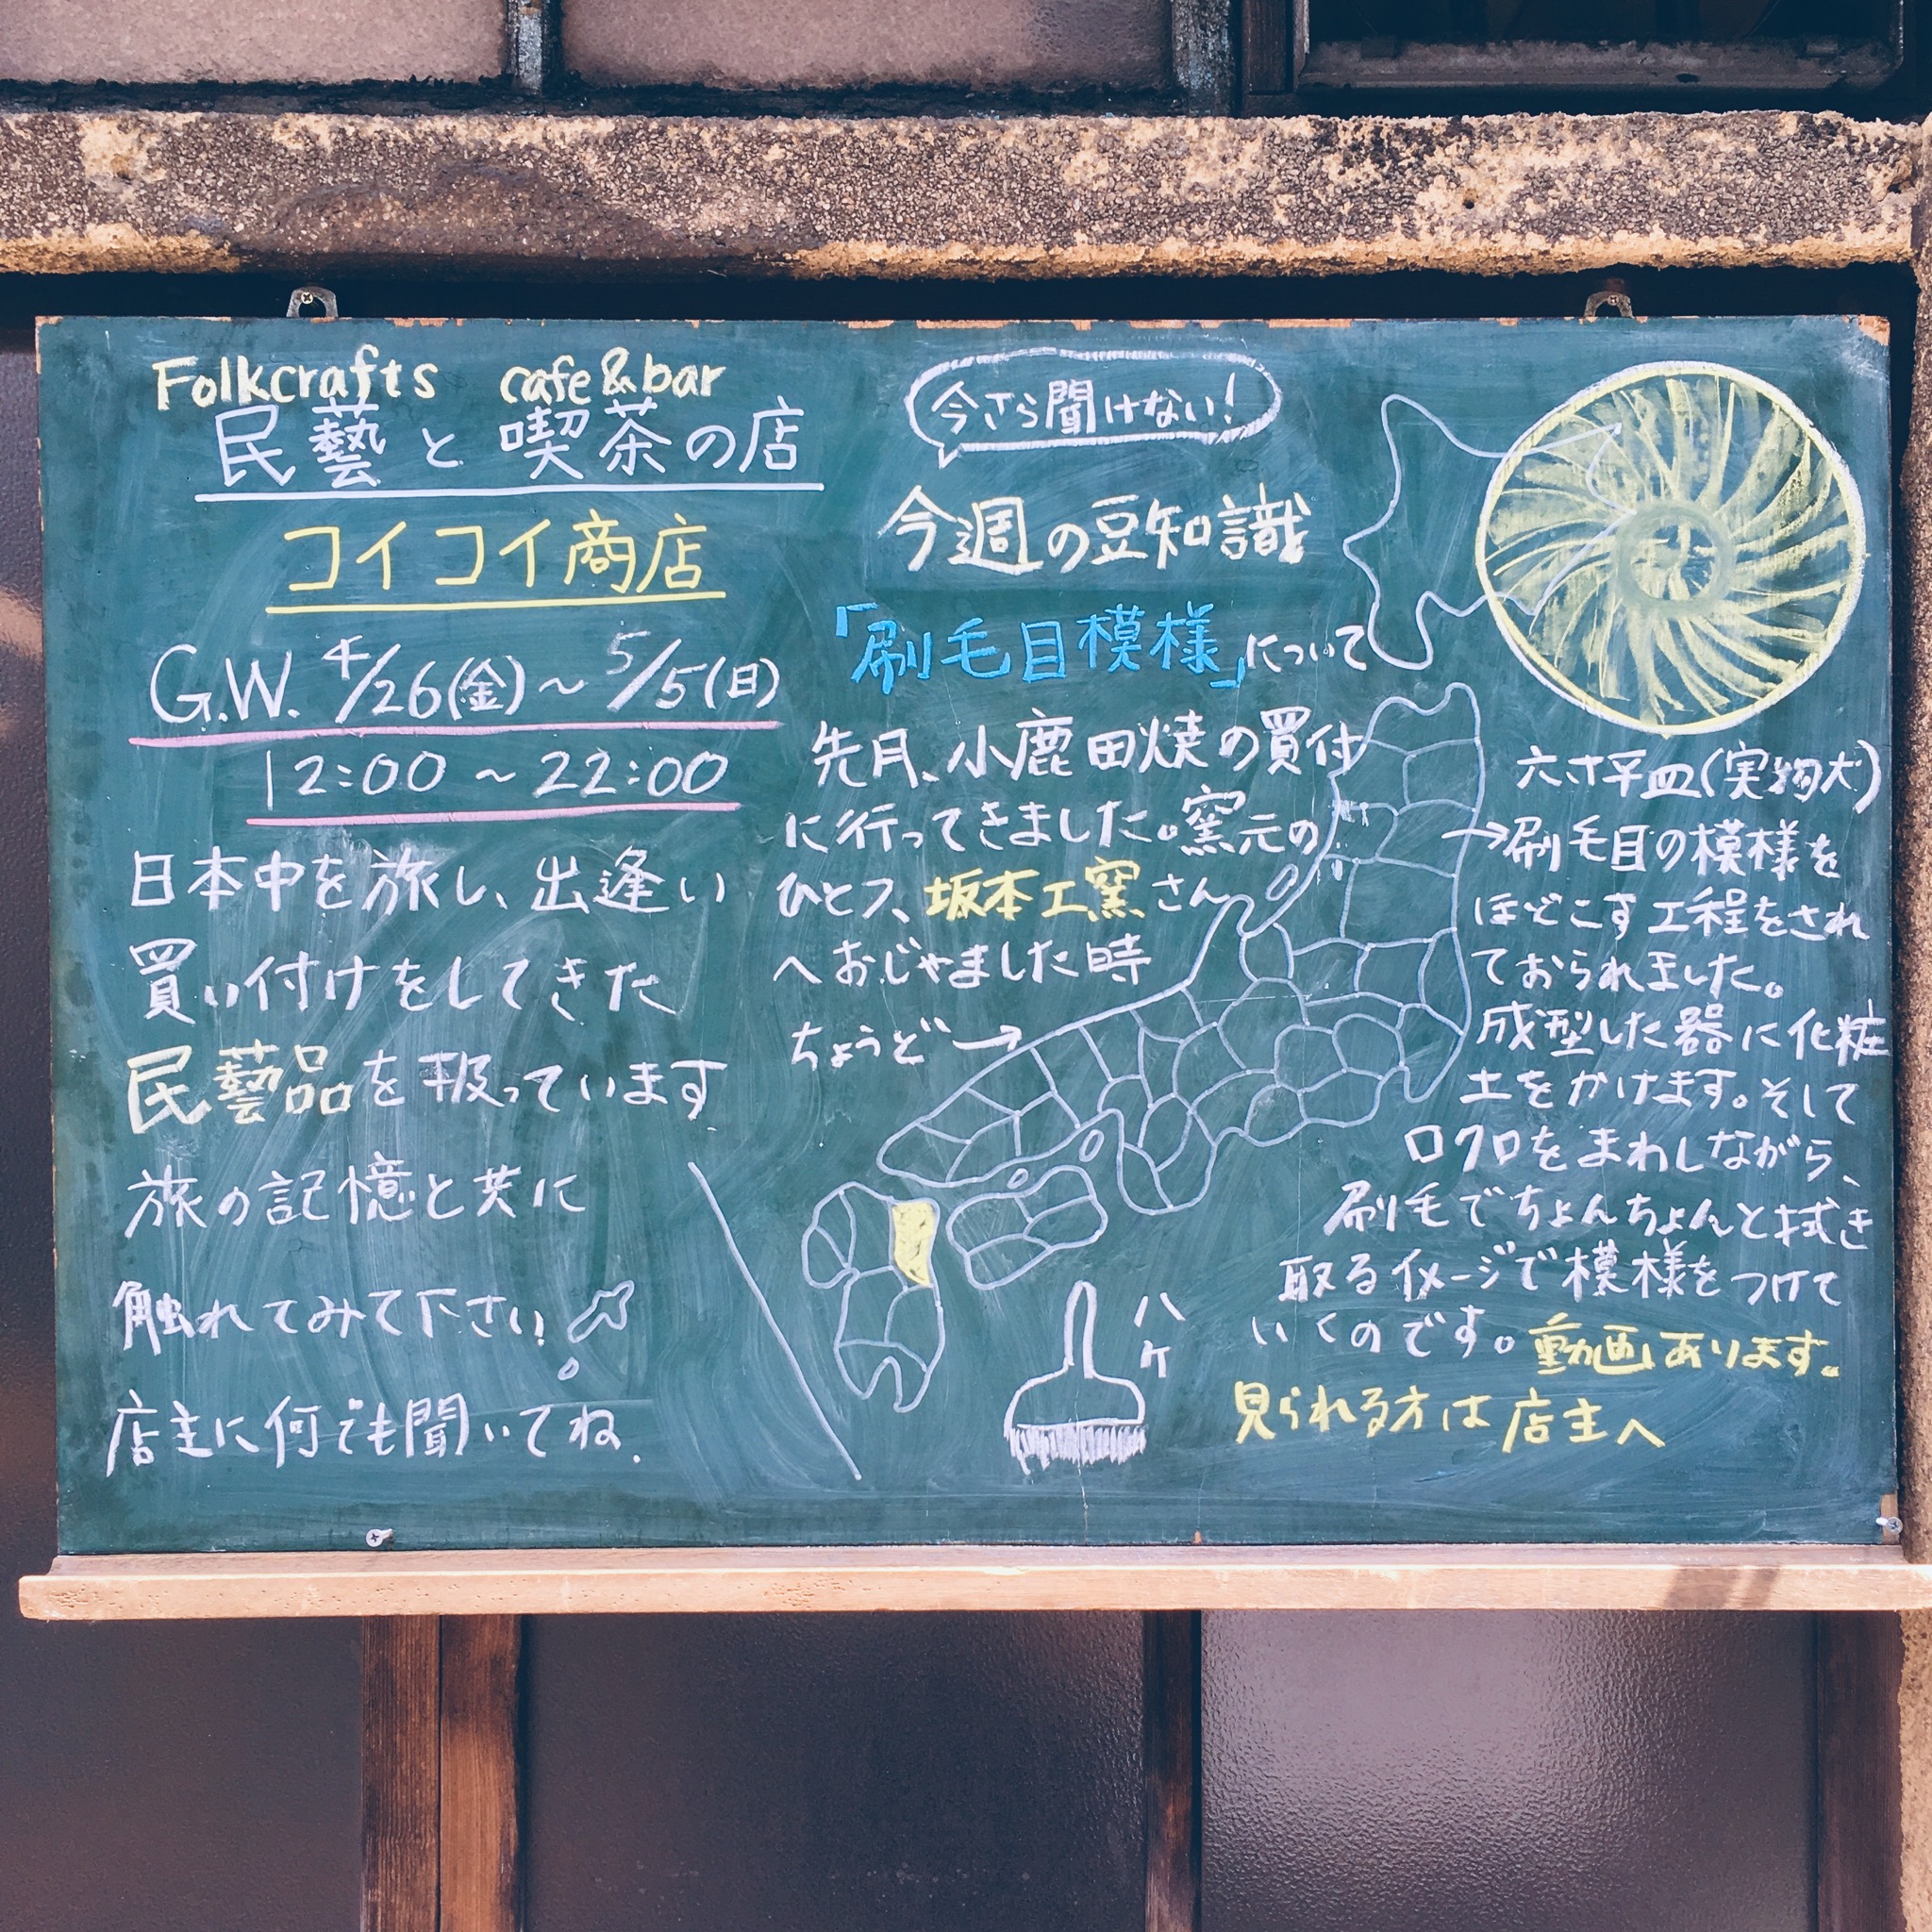 Folkcrafts cafe&bar
民藝と喫茶の店
コイコイ商店
G.W. 4/26(金)～5/5(日)
12:00～22:00
日本中を旅し、出逢い
買い付けをしてきた
民藝品を扱っています
旅の記憶と共に
触れてみて下さい
店主に何でも聞いてね.
今さら聞けない!
今週の豆知識
「刷毛目模様」について
先月、小鹿田焼の買付
に行ってきました。窯元の
ひとつ、坂本工窯さん
へおじゃました時
ちょうど→
ハケ
六寸平皿(実物大)
→刷毛目の模様を
ほどこす工程をされ
ておられました。
成型した器に化粧
土をかけます。そして
ロクロをまわしながら、
刷毛でちょんちょんと拭き
取るイメージで模様をつけて
いくのです。動画あります。
見られる方は店主へ